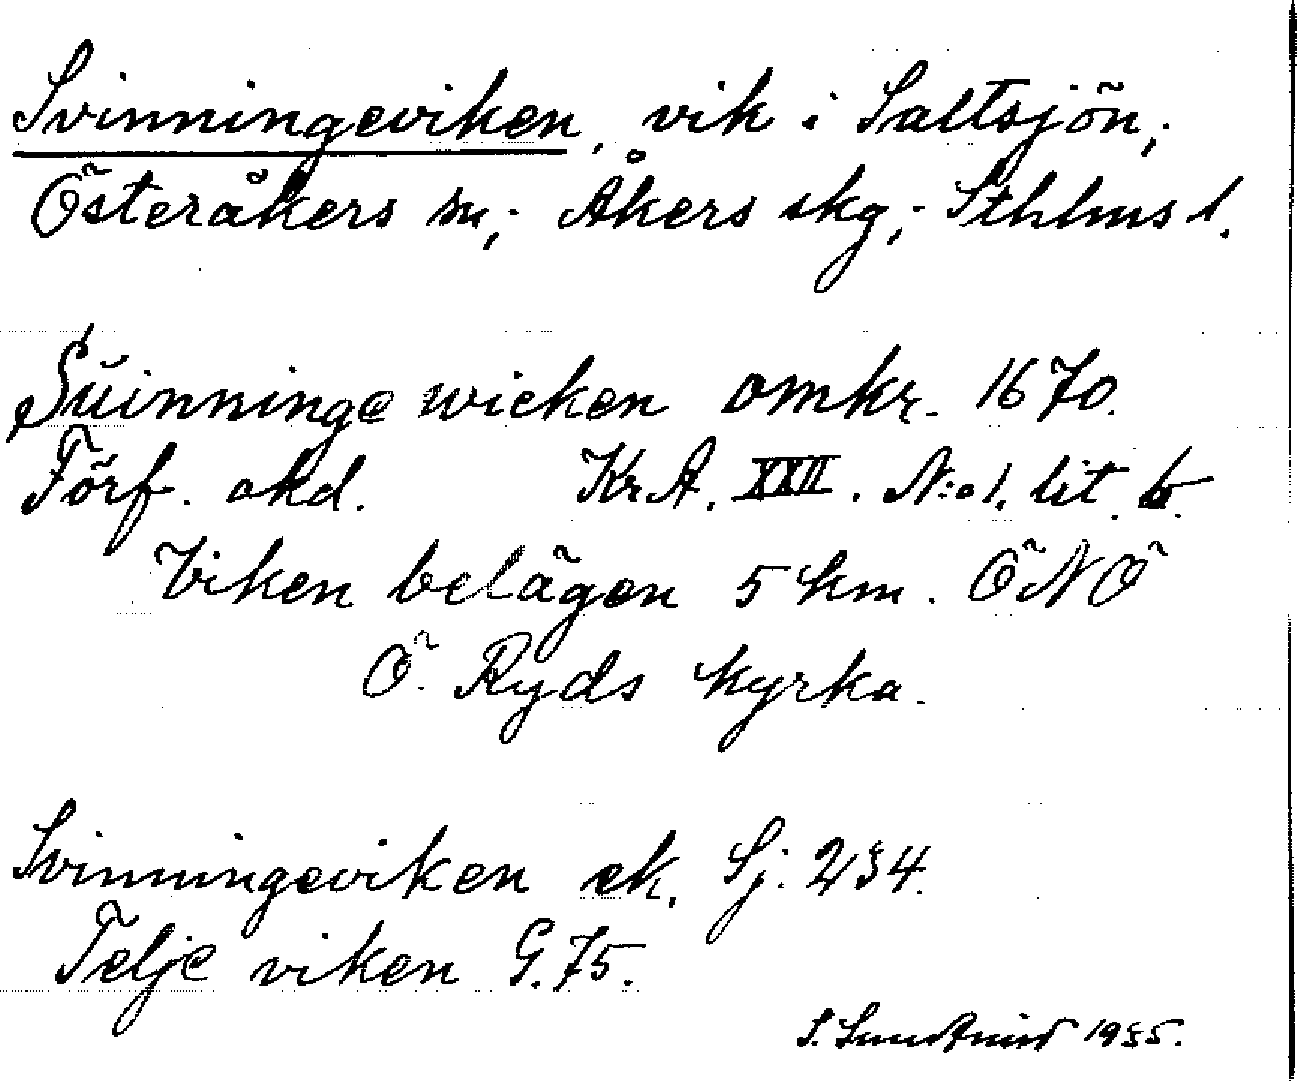 Svinningeviken, vik i Saltsjön,;
Österåkers sn,; Åkers skg,; Sthlms l.
Sŭinninge wicken omkr. 1670.
Förf. okd. KrA. XXII. N:o 1. lit. b.
Viken belägen 5 km. ÖNÖ
Ö. Ryds kyrka.
Svinningeviken ek. Sj. 234.
Telje viken G. 75.
S. 1935.